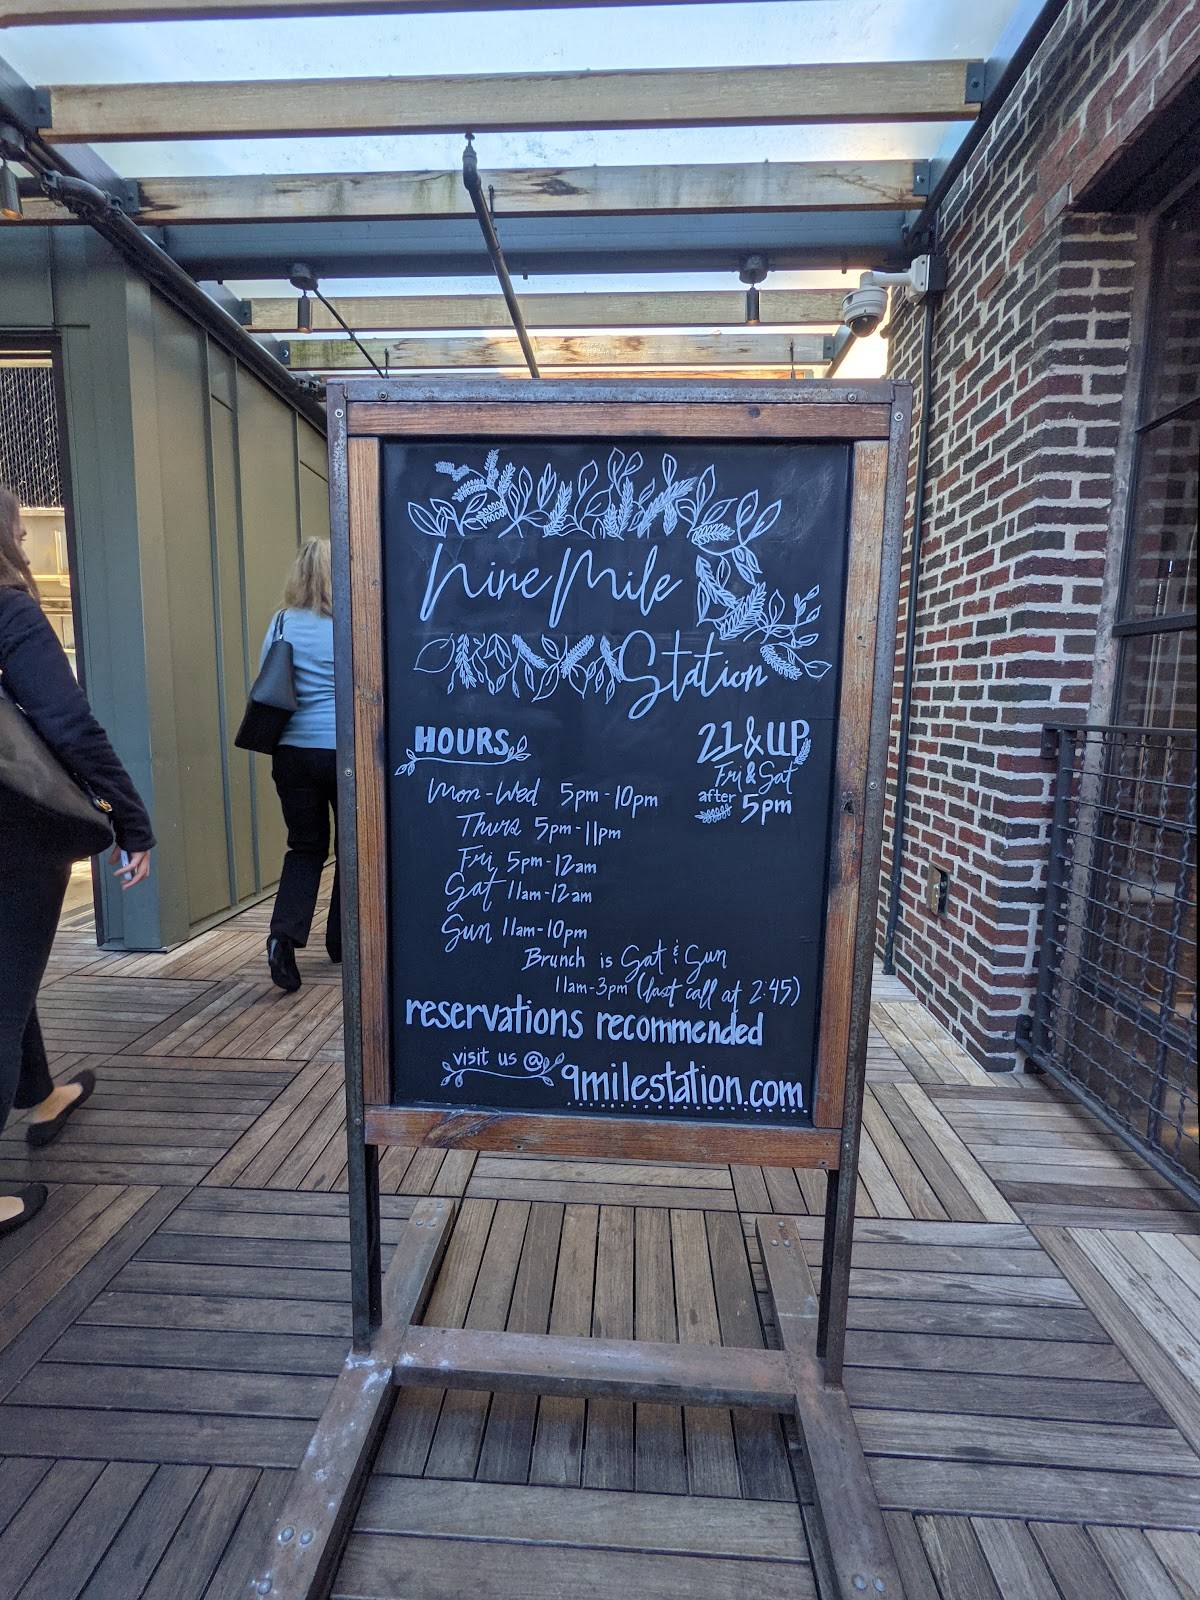 Nine Mile
Station
HOURS
21 & UP
Fri & Sat
after 5pm
Mon-Wed 5pm-10pm
Thurs 5pm-11pm
Fri 5pm-12am
Sat 11am-12am
Sun 11am-10pm
Brunch is Sat & Sun
11am-3pm (last call at 2:45)
reservations recommended
visit us @
9milestation.com